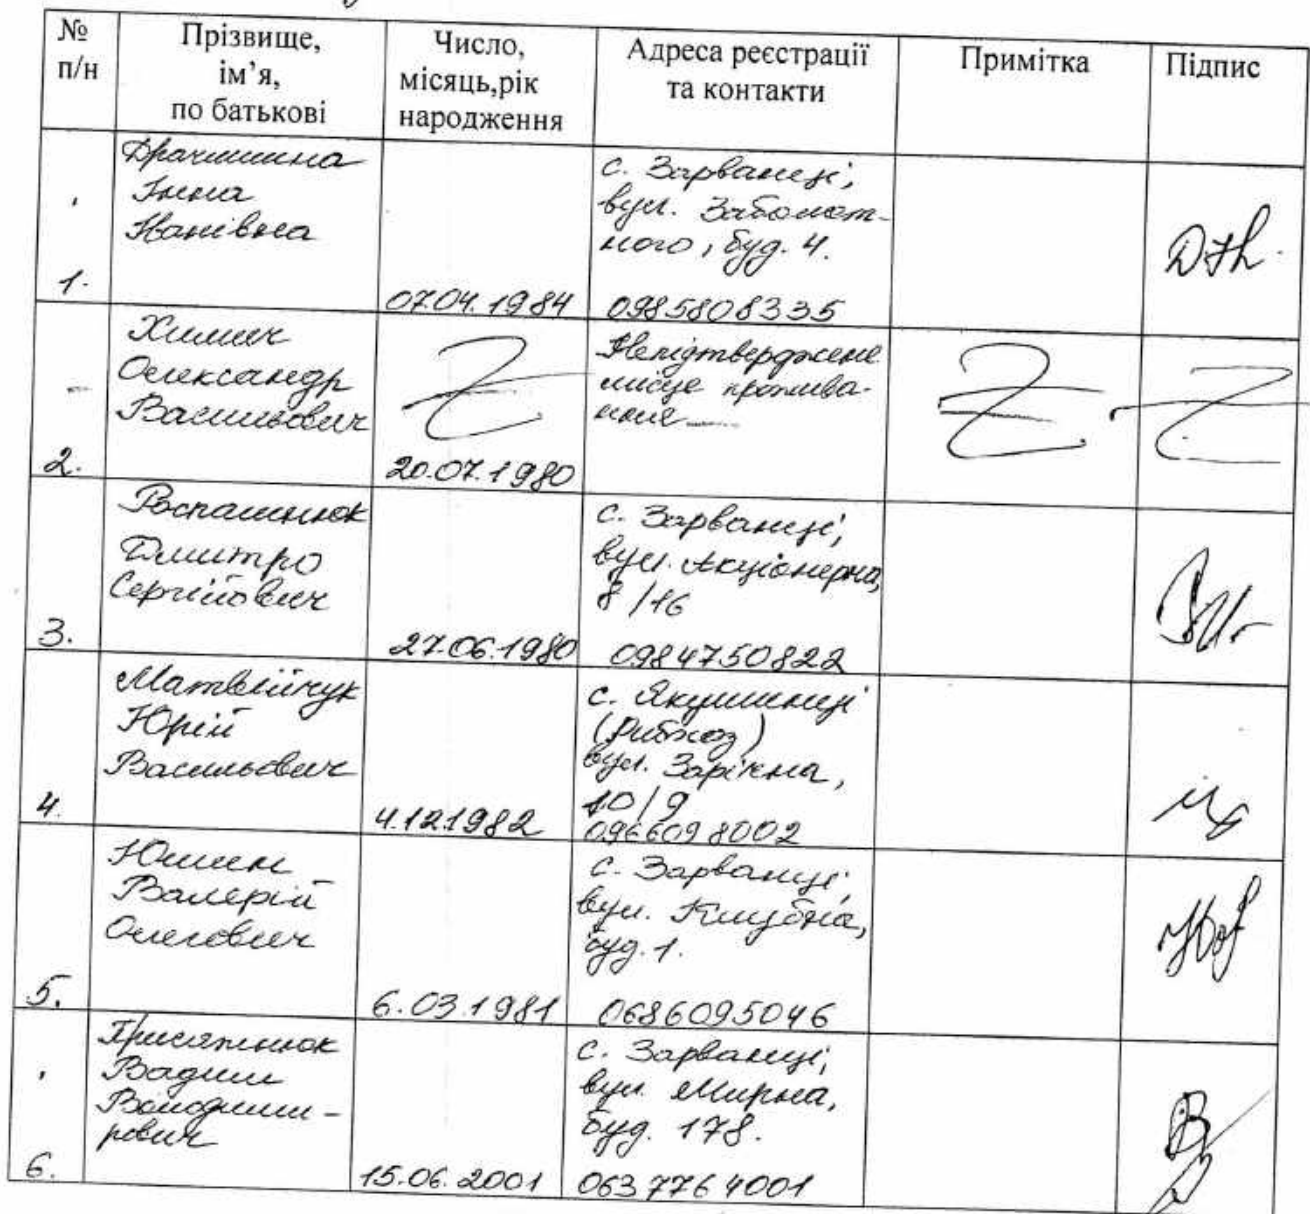 № п/н
Прізвище, ім’я, по батькові
Число, місяць,рік народження
Адреса реєстрації та контакти
Примітка
Підпис
1.
Драчишина
Інна
Іванівна
07.04.1984
с. Зарванці,
вул. Заболот-
ного, буд. 4.
0985808335
2.
Химич
Олександр
Васильович
20.07.1980
Непідтверджене
місце прожива-
ння
3.
Роспашнюк
Дмитро
Сергійович
27.06.1980
с. Зарванці,
вул. Акціонерна,
8/16
0984750822
4.
Матвійчук
Юрій
Васильович
4.12.1982
с. Якушинці
(Рибхоз)
вул. Зарічна,
10/9
0966098002
5.
Юшин
Валерій
Олегович
6.03.1981
с. Зарванці,
вул. Клубна,
буд. 1.
0686095046
6.
Присяжнюк
Вадим
Володими-
рович
15.06.2001
с. Зарванці,
вул. Мирна,
буд. 178.
0637764001